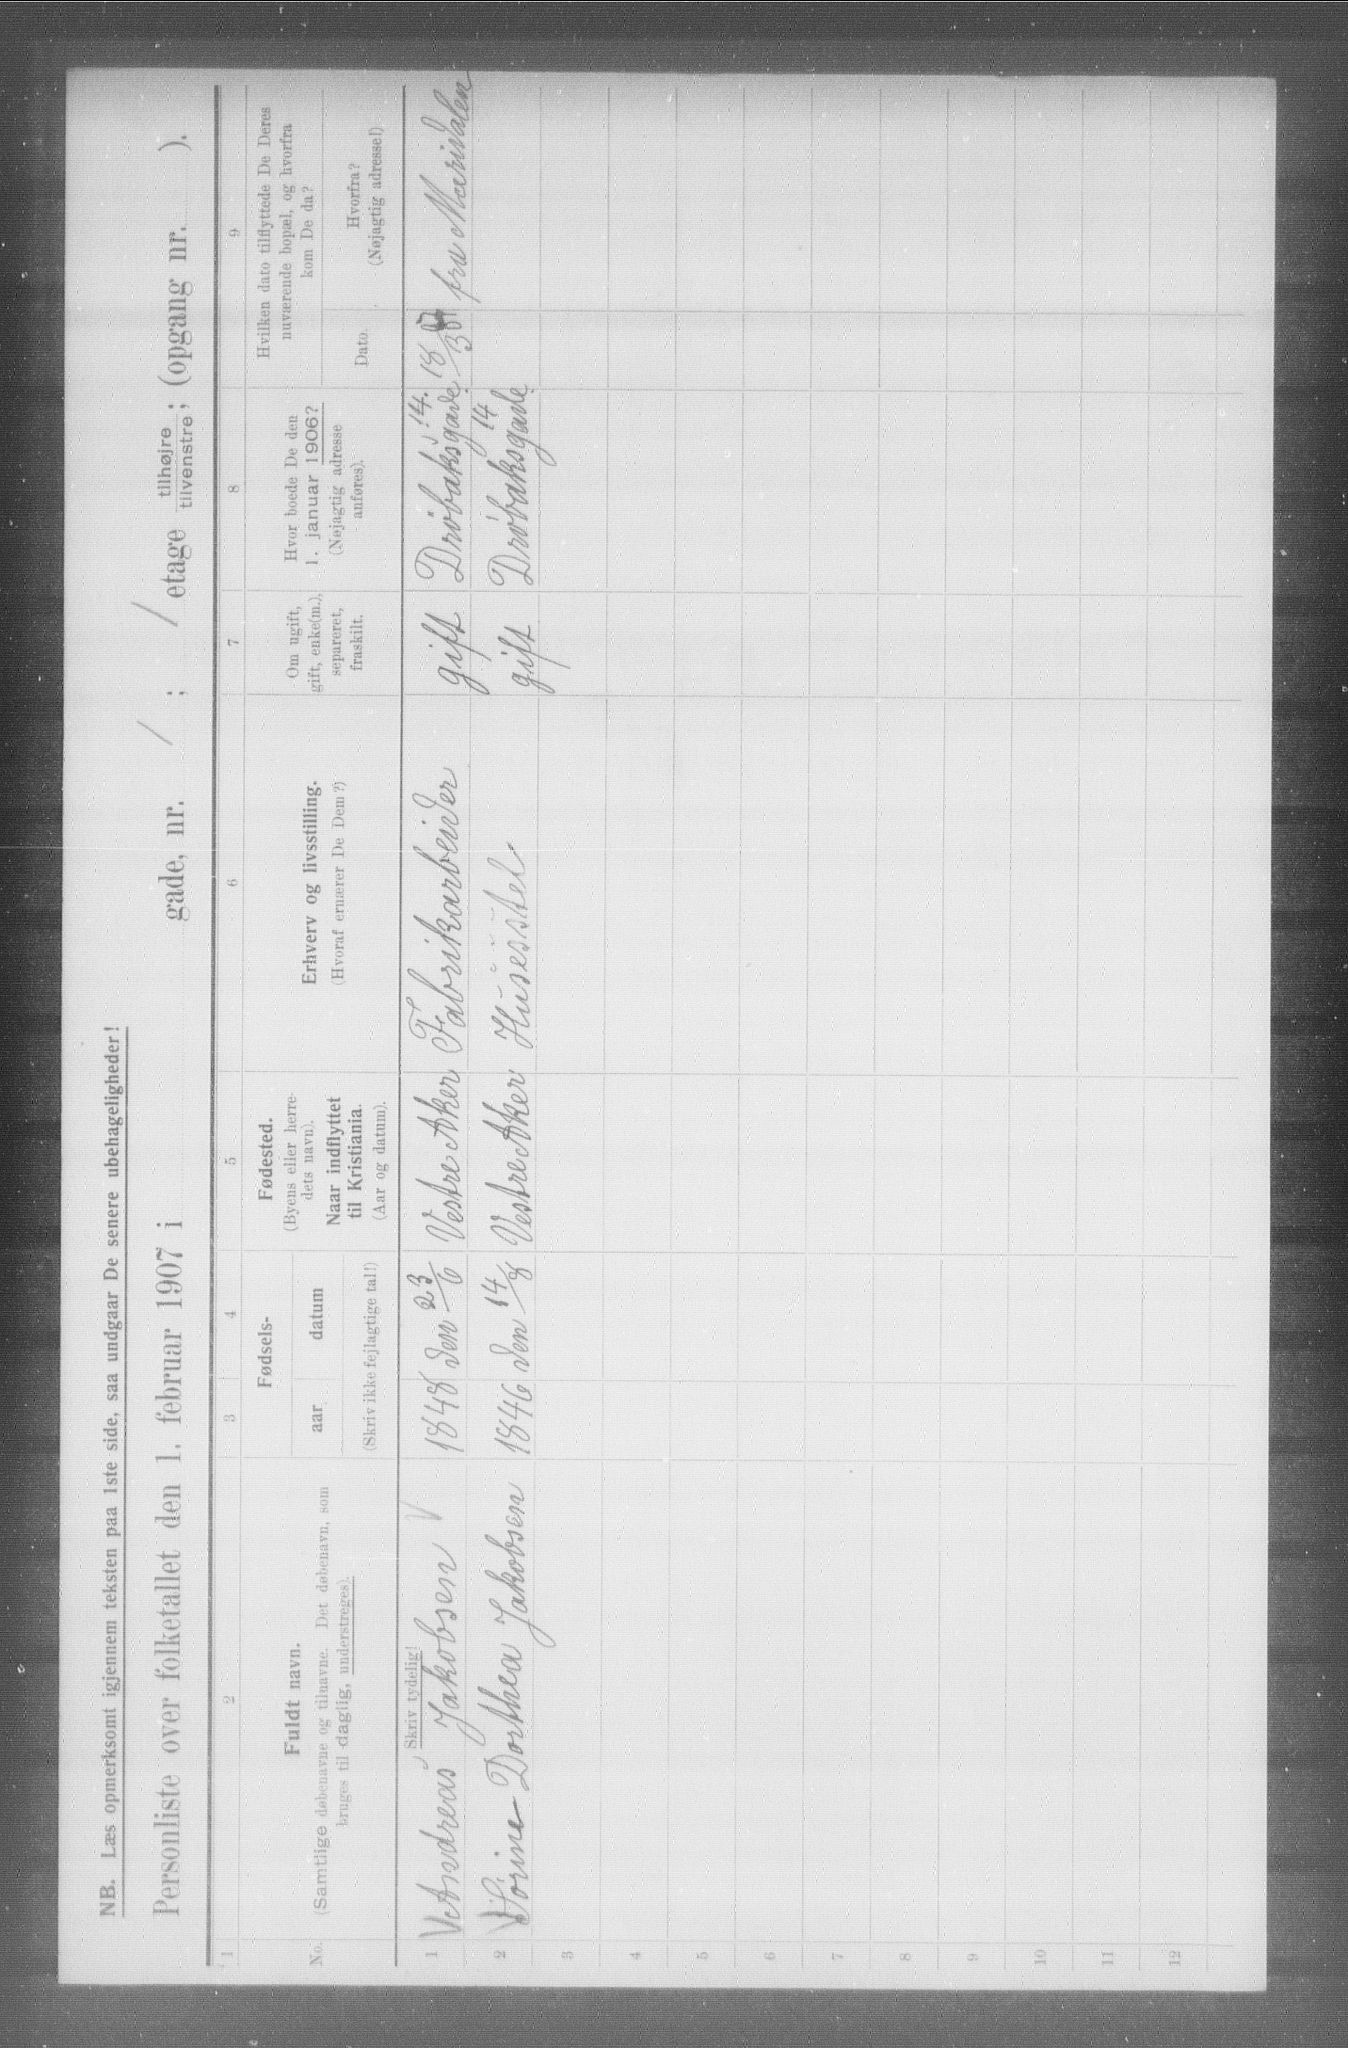 NB. Læs opmerksomt igjennem teksten paa 1ste side, saa undgaar De senere ubehageligheder!
Personliste over folketallet den 1. februar 1907 i gade, nr. / ; / etage tilhøjre tilvenstre; (opgang nr. ).
1 2 3 4 5 6 7 8 9
No.
Fuldt navn.
(Samtlige døbenavne og tilnavne. Det døbenavn, som
bruges til daglig, understreges).
Fødsels-
aar datum
(Skriv ikke fejlagtige tal!)
Fødested.
(Byens eller herre-
dets navn).
Naar indflyttet
til Kristiania.
(Aar og datum).
Erhverv og livsstilling.
(Hvoraf ernærer De Dem?)
Om ugift,
gift, enke(m.),
separeret,
fraskilt.
Hvor boede De den
1. januar 1906?
(Nøjagtig adresse
anføres).
Hvilken dato tilflyttede De Deres
nuværende bopæl, og hvorfra
kom De da?
Dato.
Hvorfra?
(Nøjagtig adresse!)
Skriv tydelig!
1 Andreas Jakobsen 1848 den 23/6 Vestre Aker Fabrikarbeider gift Drøbaksgade 14. fra Maridalen
2 Sørine Dorthea Jakobsen 1846 den 14/8 Vestre Aker Husestel gift Drøbaksgade 14
3
4
5
6
7
8
9
10
11
12